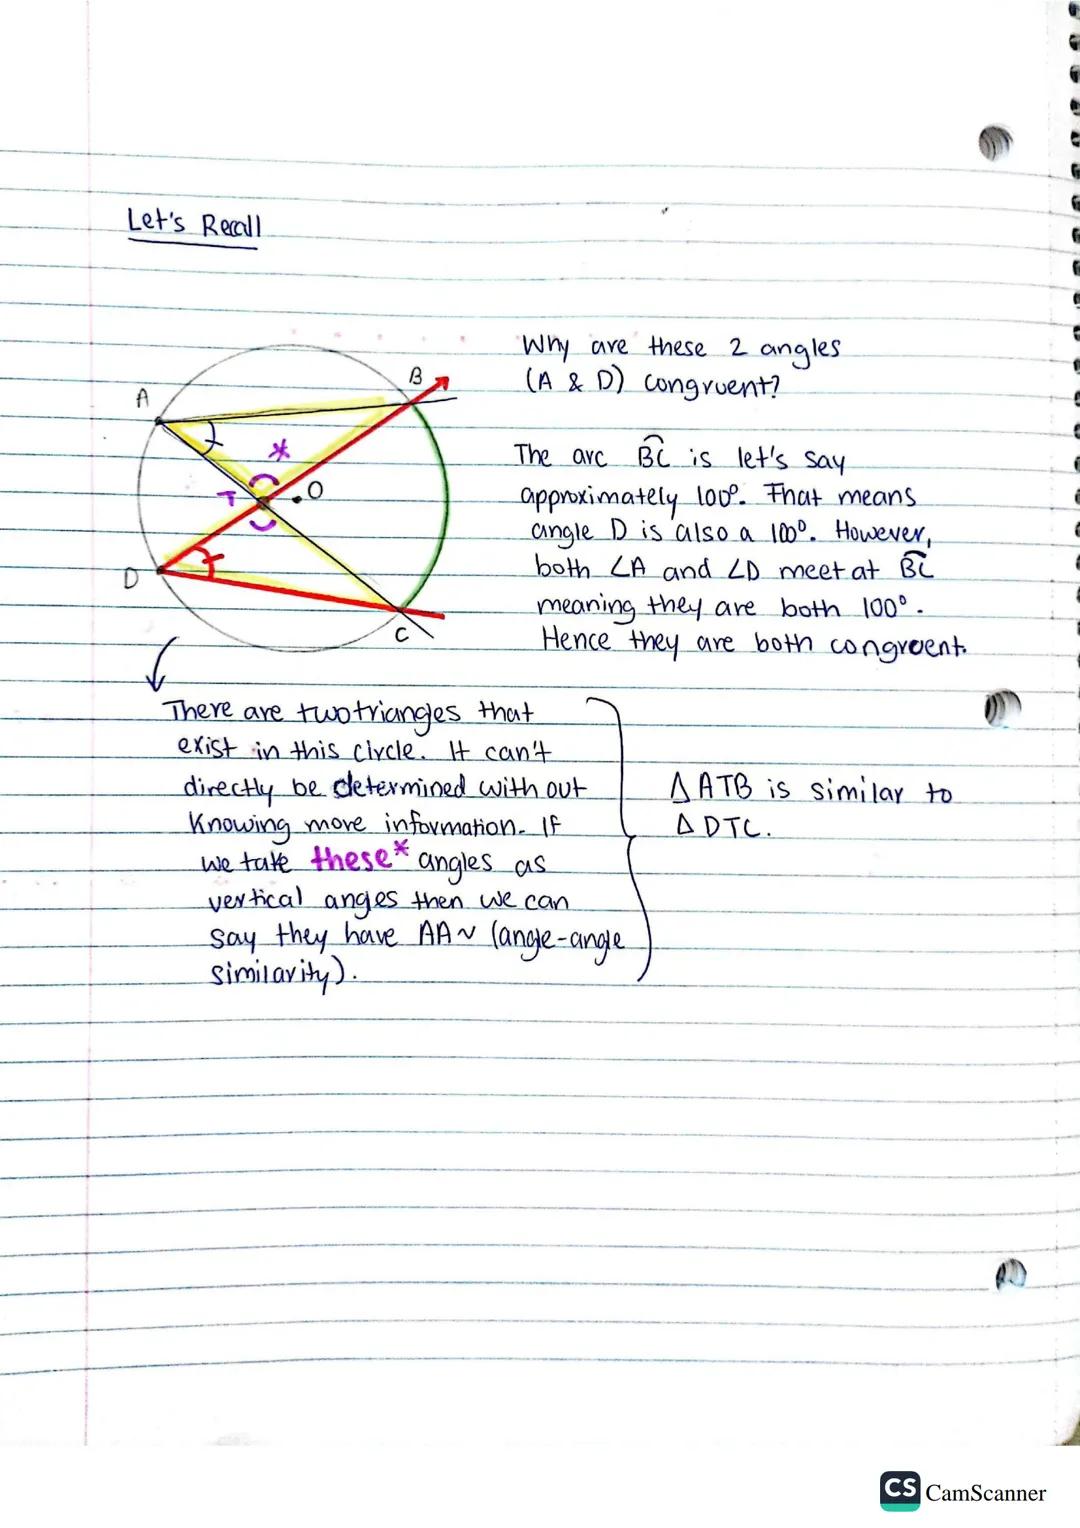 Let's Recall
Why are these 2 angles
(A & D) congruent?
A
B
*
T
O
D
C
The arc BC is let's say
approximately 100°. That means
angle D is also a 100°. However,
both ∠A and ∠D meet at BC
meaning they are both 100°.
Hence they are both congruent.
There are two triangles that
exist in this circle. It can't
directly be determined with out
Knowing more information. If
we take these* angles as
vertical anges then we can
say they have AA~ (angle-angle
similarity).
△ATB is similar to
△DTC.
CS CamScanner